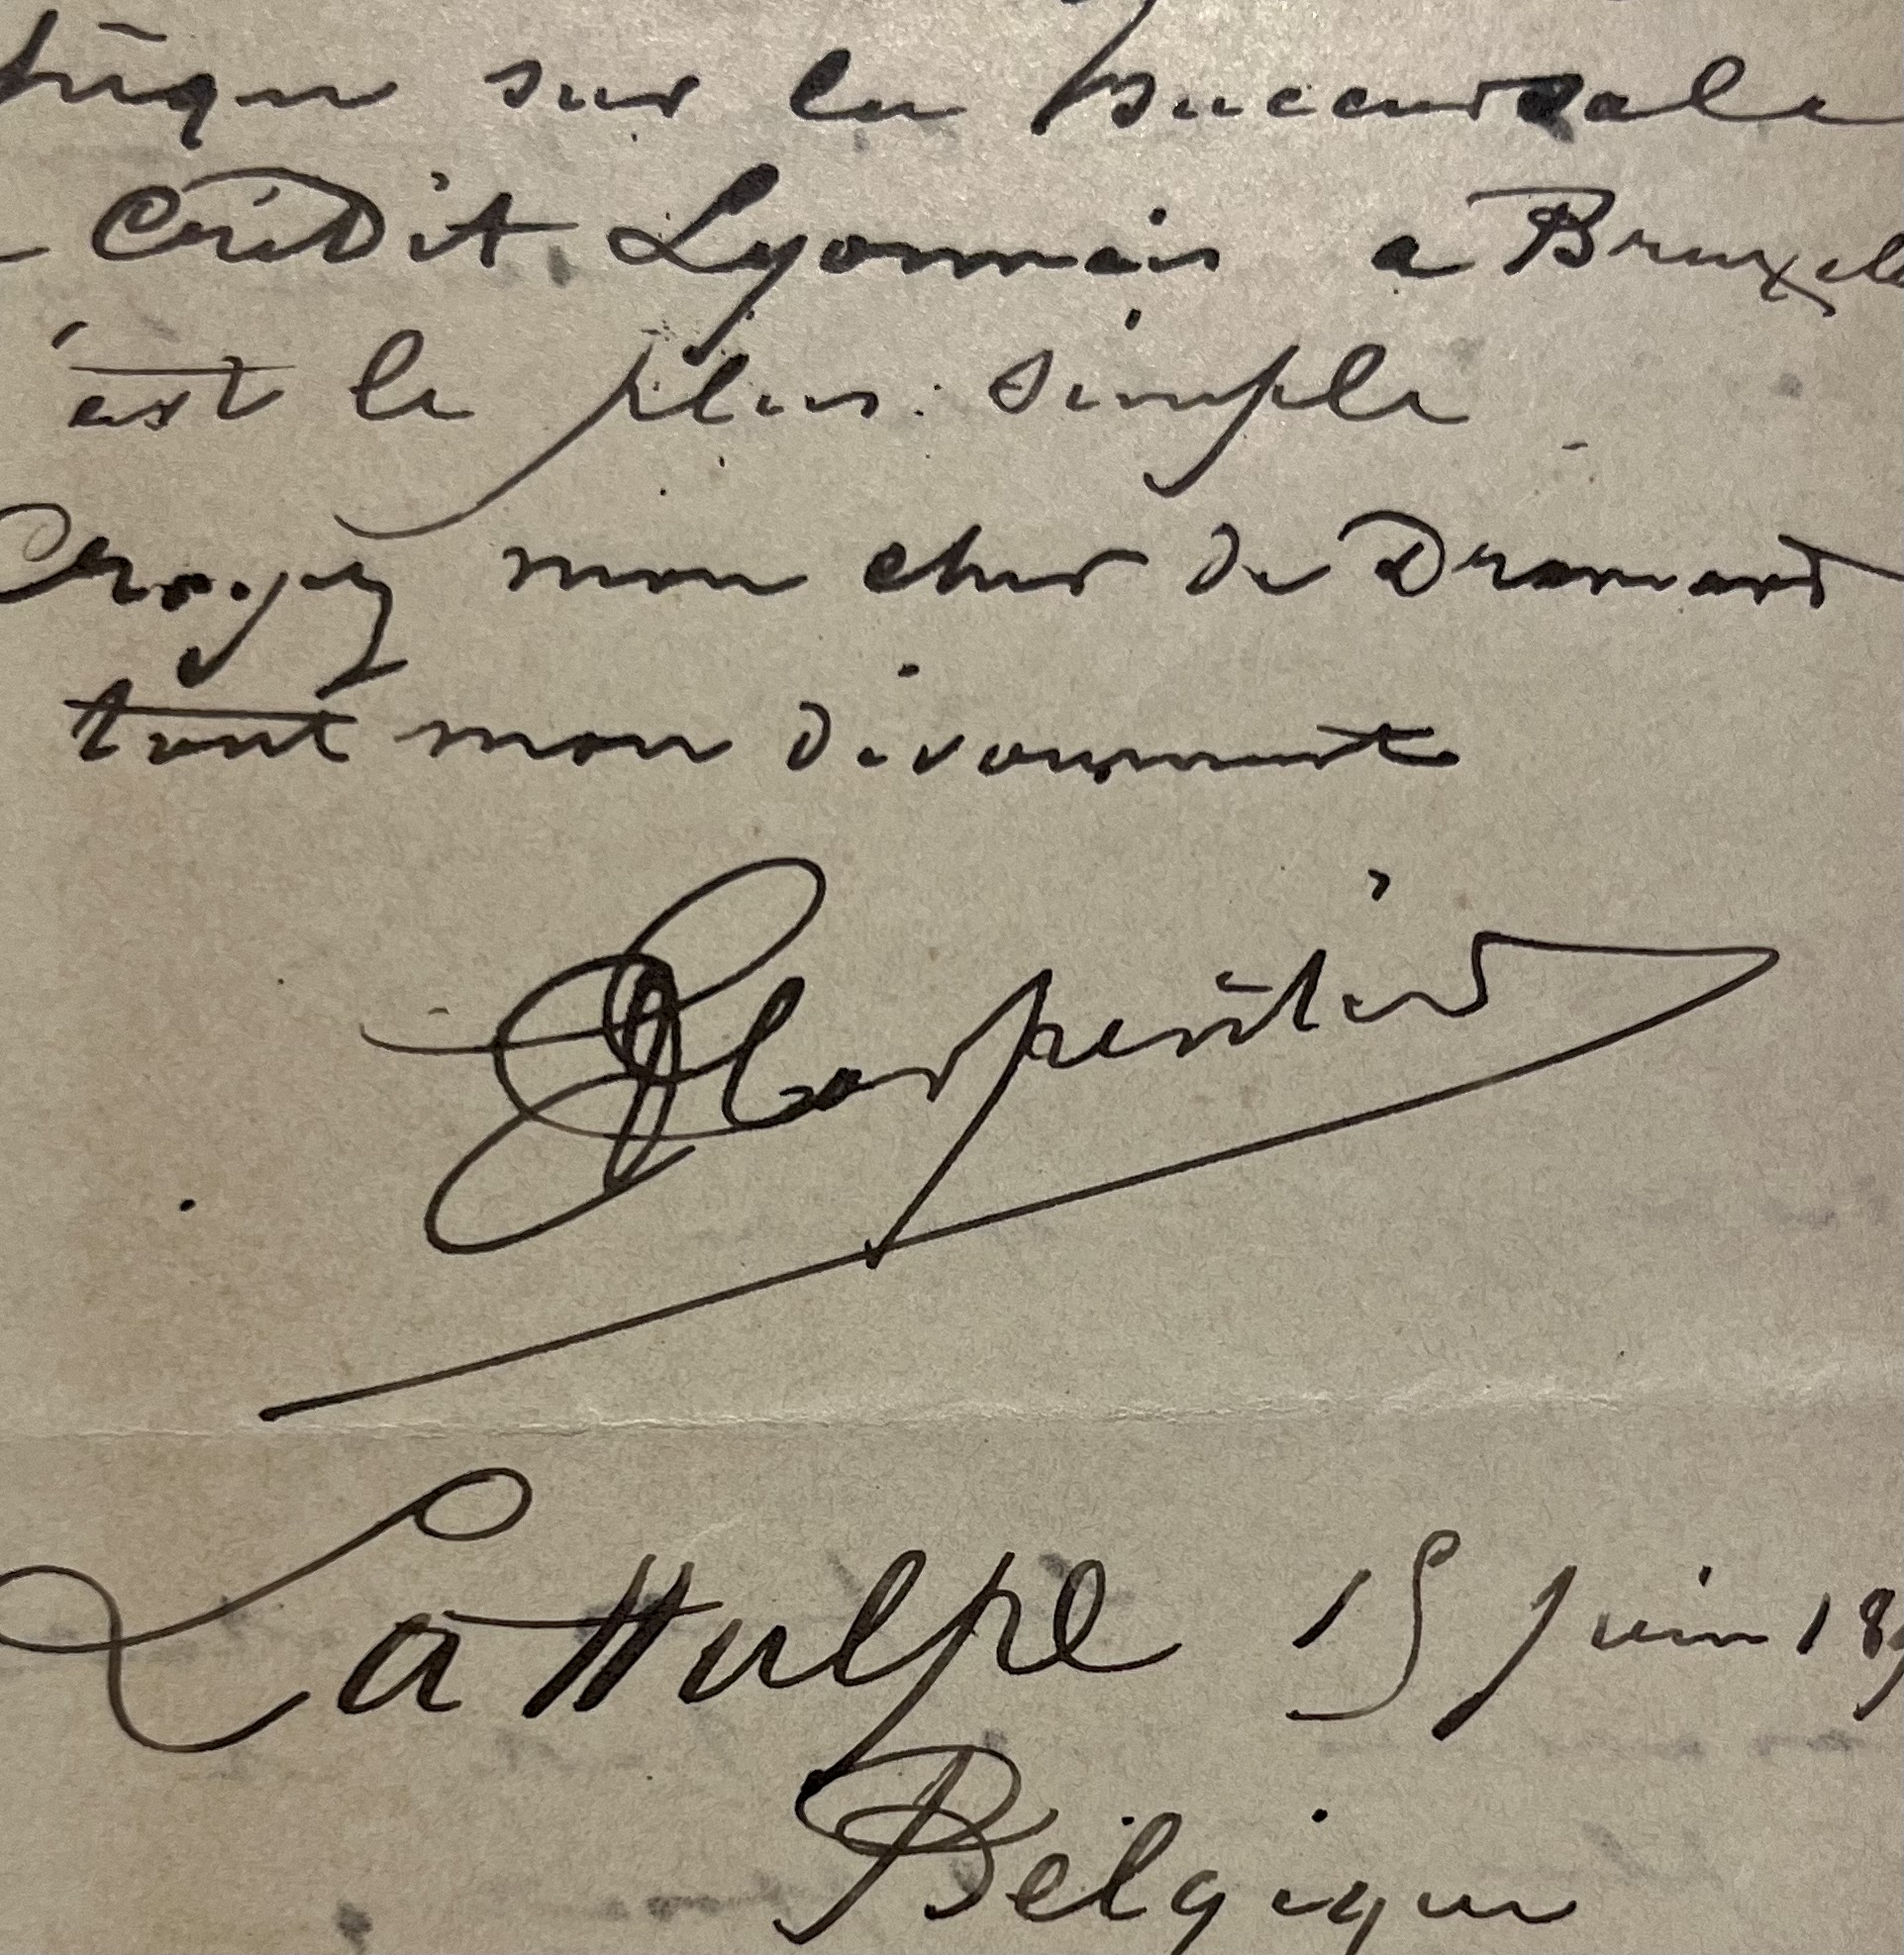 sur la succursale
Crédit Lyonnais a Bruxelle
est le plus simple
Croyez mon cher de Dramard
tout mon dévouement
Charpentier
La Hulpe 15 juin 18
Belgique